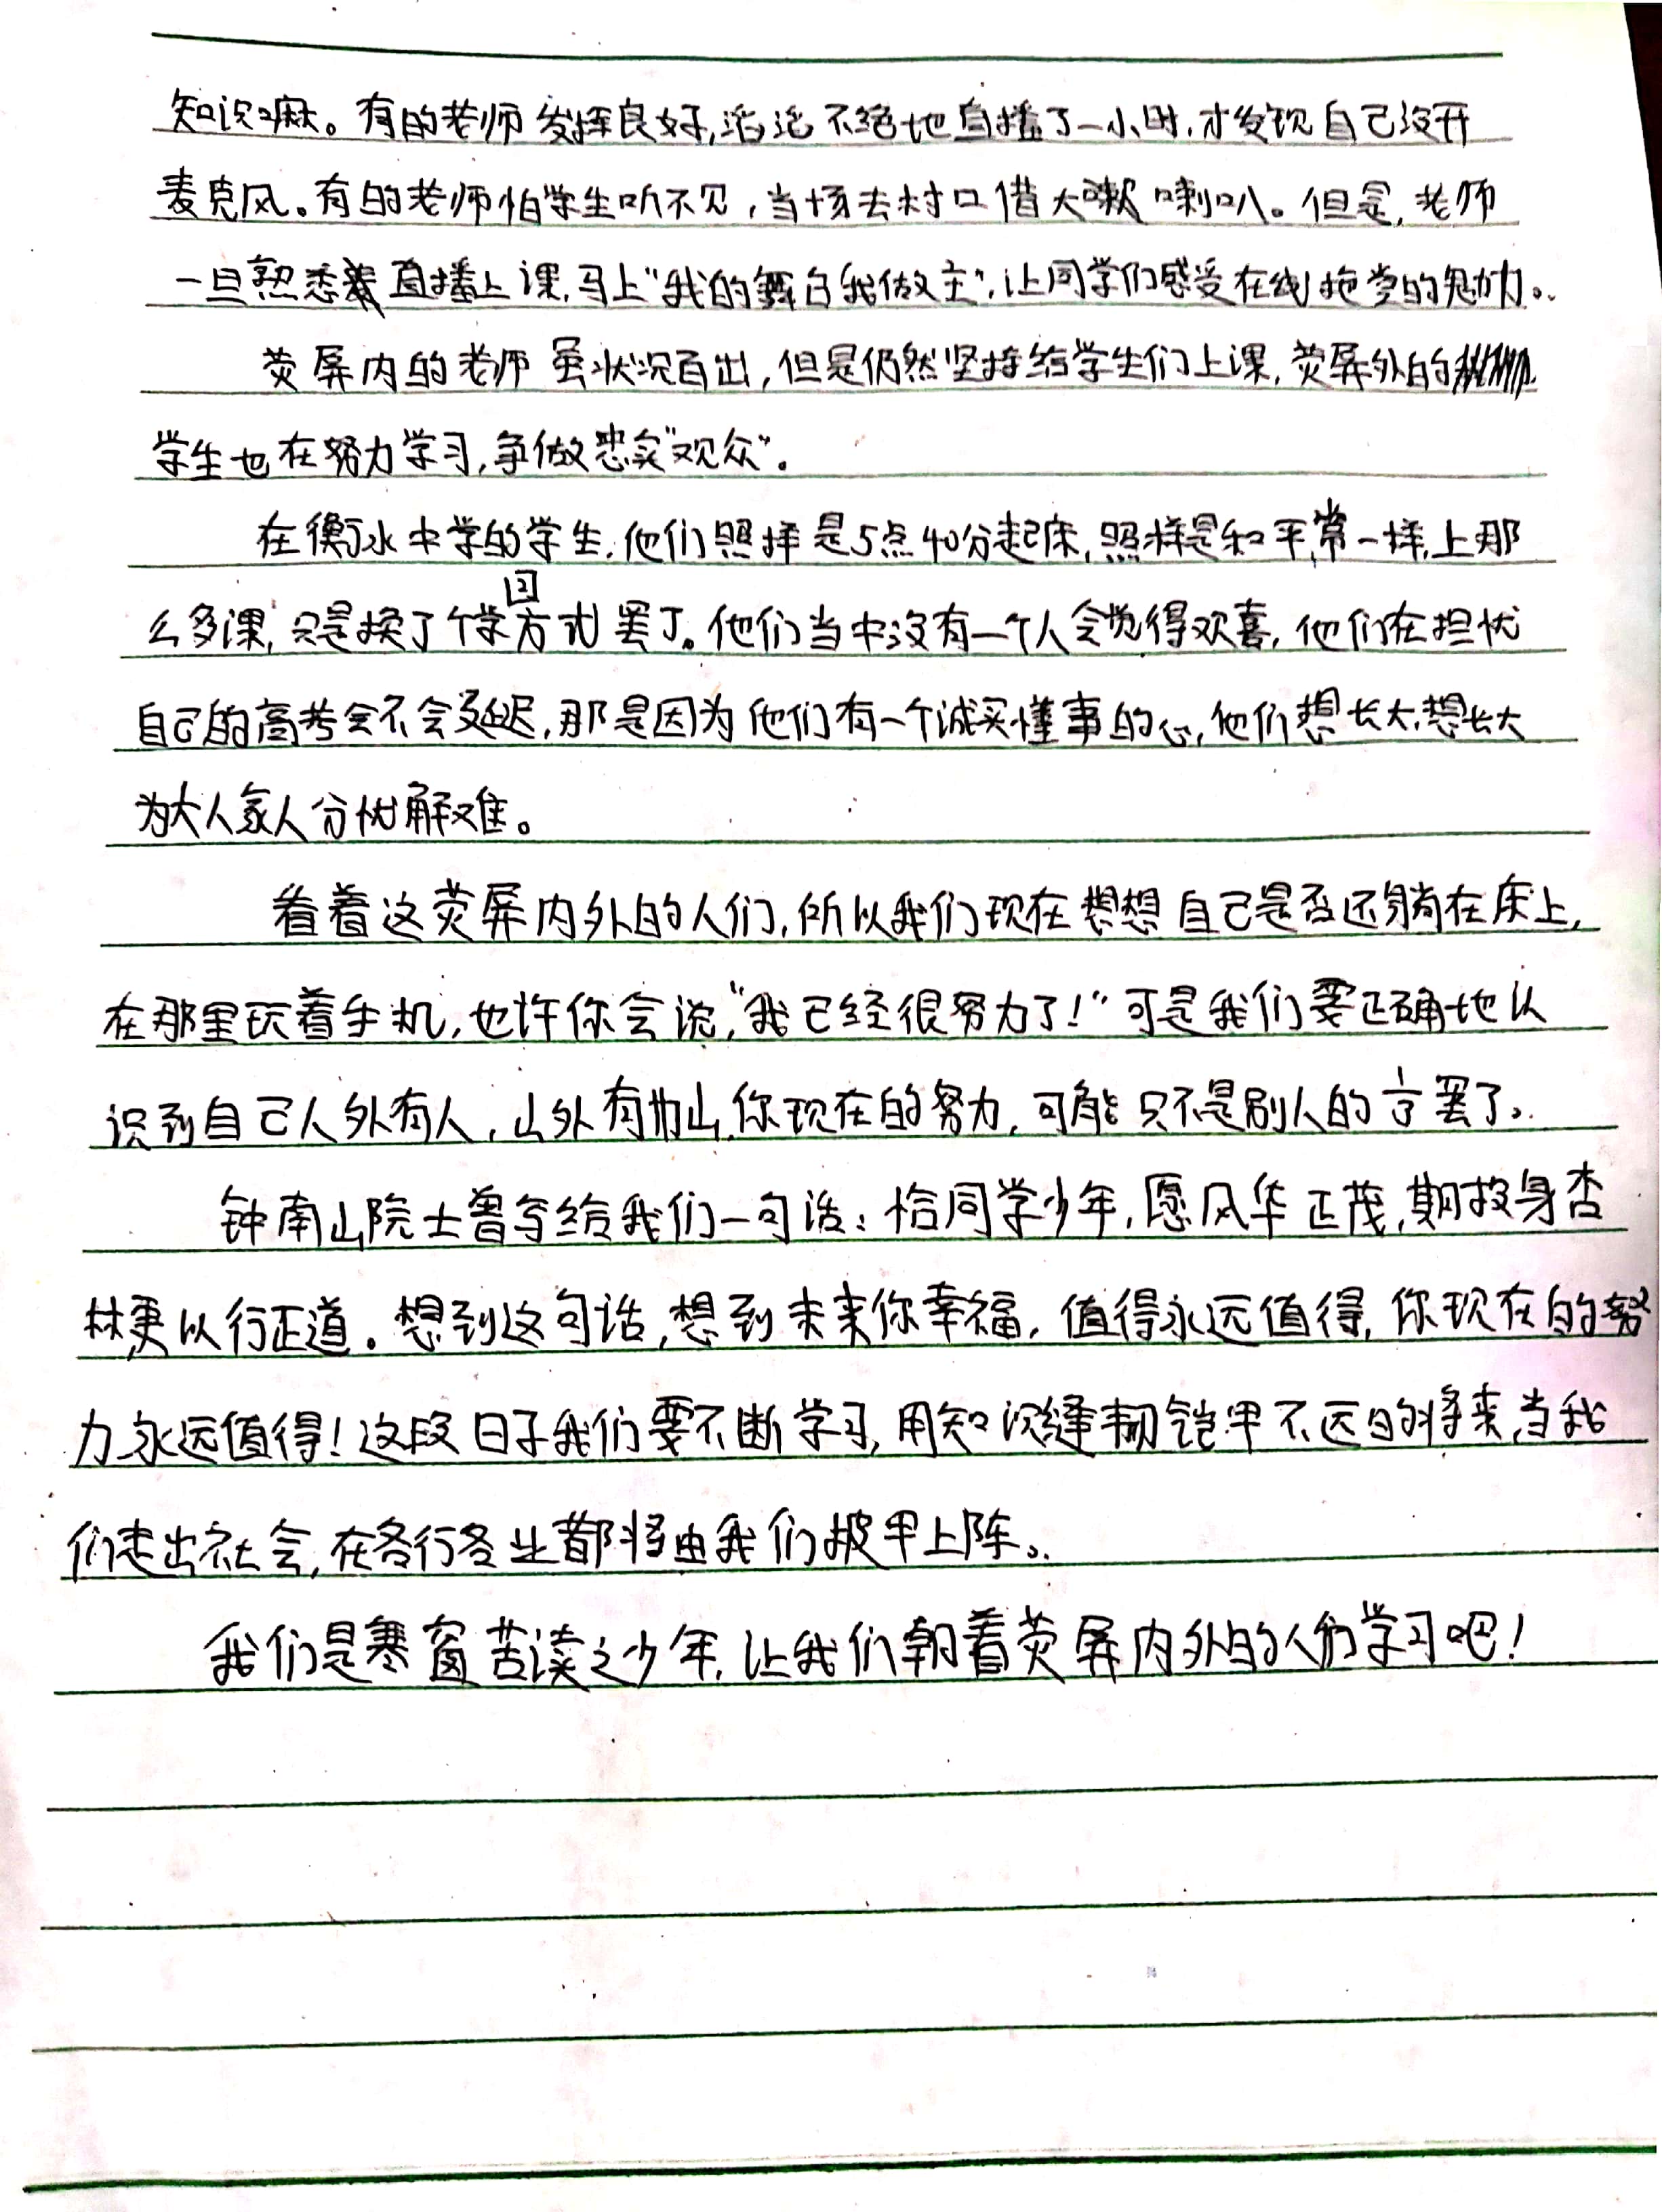 知识嘛。有的老师发挥良好,滔滔不绝地直播了一小时,才发现自己没开
麦克风。有的老师怕学生听不见,当场去村口借大喇叭。但是,老师
一旦熟悉直播上课,马上"我的舞台我做主",让同学们感受在线拖堂的魅力。
荧屏内的老师虽状况百出,但是仍然坚持给学生们上课,荧屏外的
学生也在努力学习,争做忠实"观众"。
在衡水中学的学生,他们照样是5点40分起床,照样是和平常一样,上那
么多课,只是换了个学习方式罢了。他们当中没有一个人会觉得欢喜,他们在担忧
自己的高考会不会延迟,那是因为他们有一个诚实懂事的心,他们想长大,想长大
为大人家人分忧解难。
看着这荧屏内外的人们,所以我们现在想想自己是否还躺在床上,
在那里玩着手机,也许你会说,"我已经很努力了!"可是我们要正确地认
识到自己人外有人,山外有山,你现在的努力,可能只不是别人的罢了。
钟南山院士曾写给我们一句话:恰同学少年,愿风华正茂,期救身杏
林更以行正道。想到这句话,想到未来你幸福,值得永远值得,你现在的努
力永远值得!这段日子我们要不断学习,用知识缝韧铠甲不远的将来,当我
们走出社会,在各行各业都将由我们披甲上阵。
我们是寒窗苦读之少年,让我们朝着荧屏内外的人们学习吧!